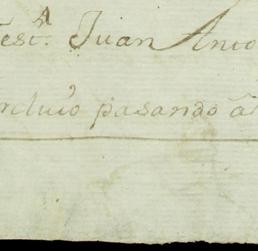 test.ª Juan Anto
ncluio pasando â